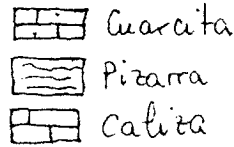 Cuarcita
Pizarra
Caliza